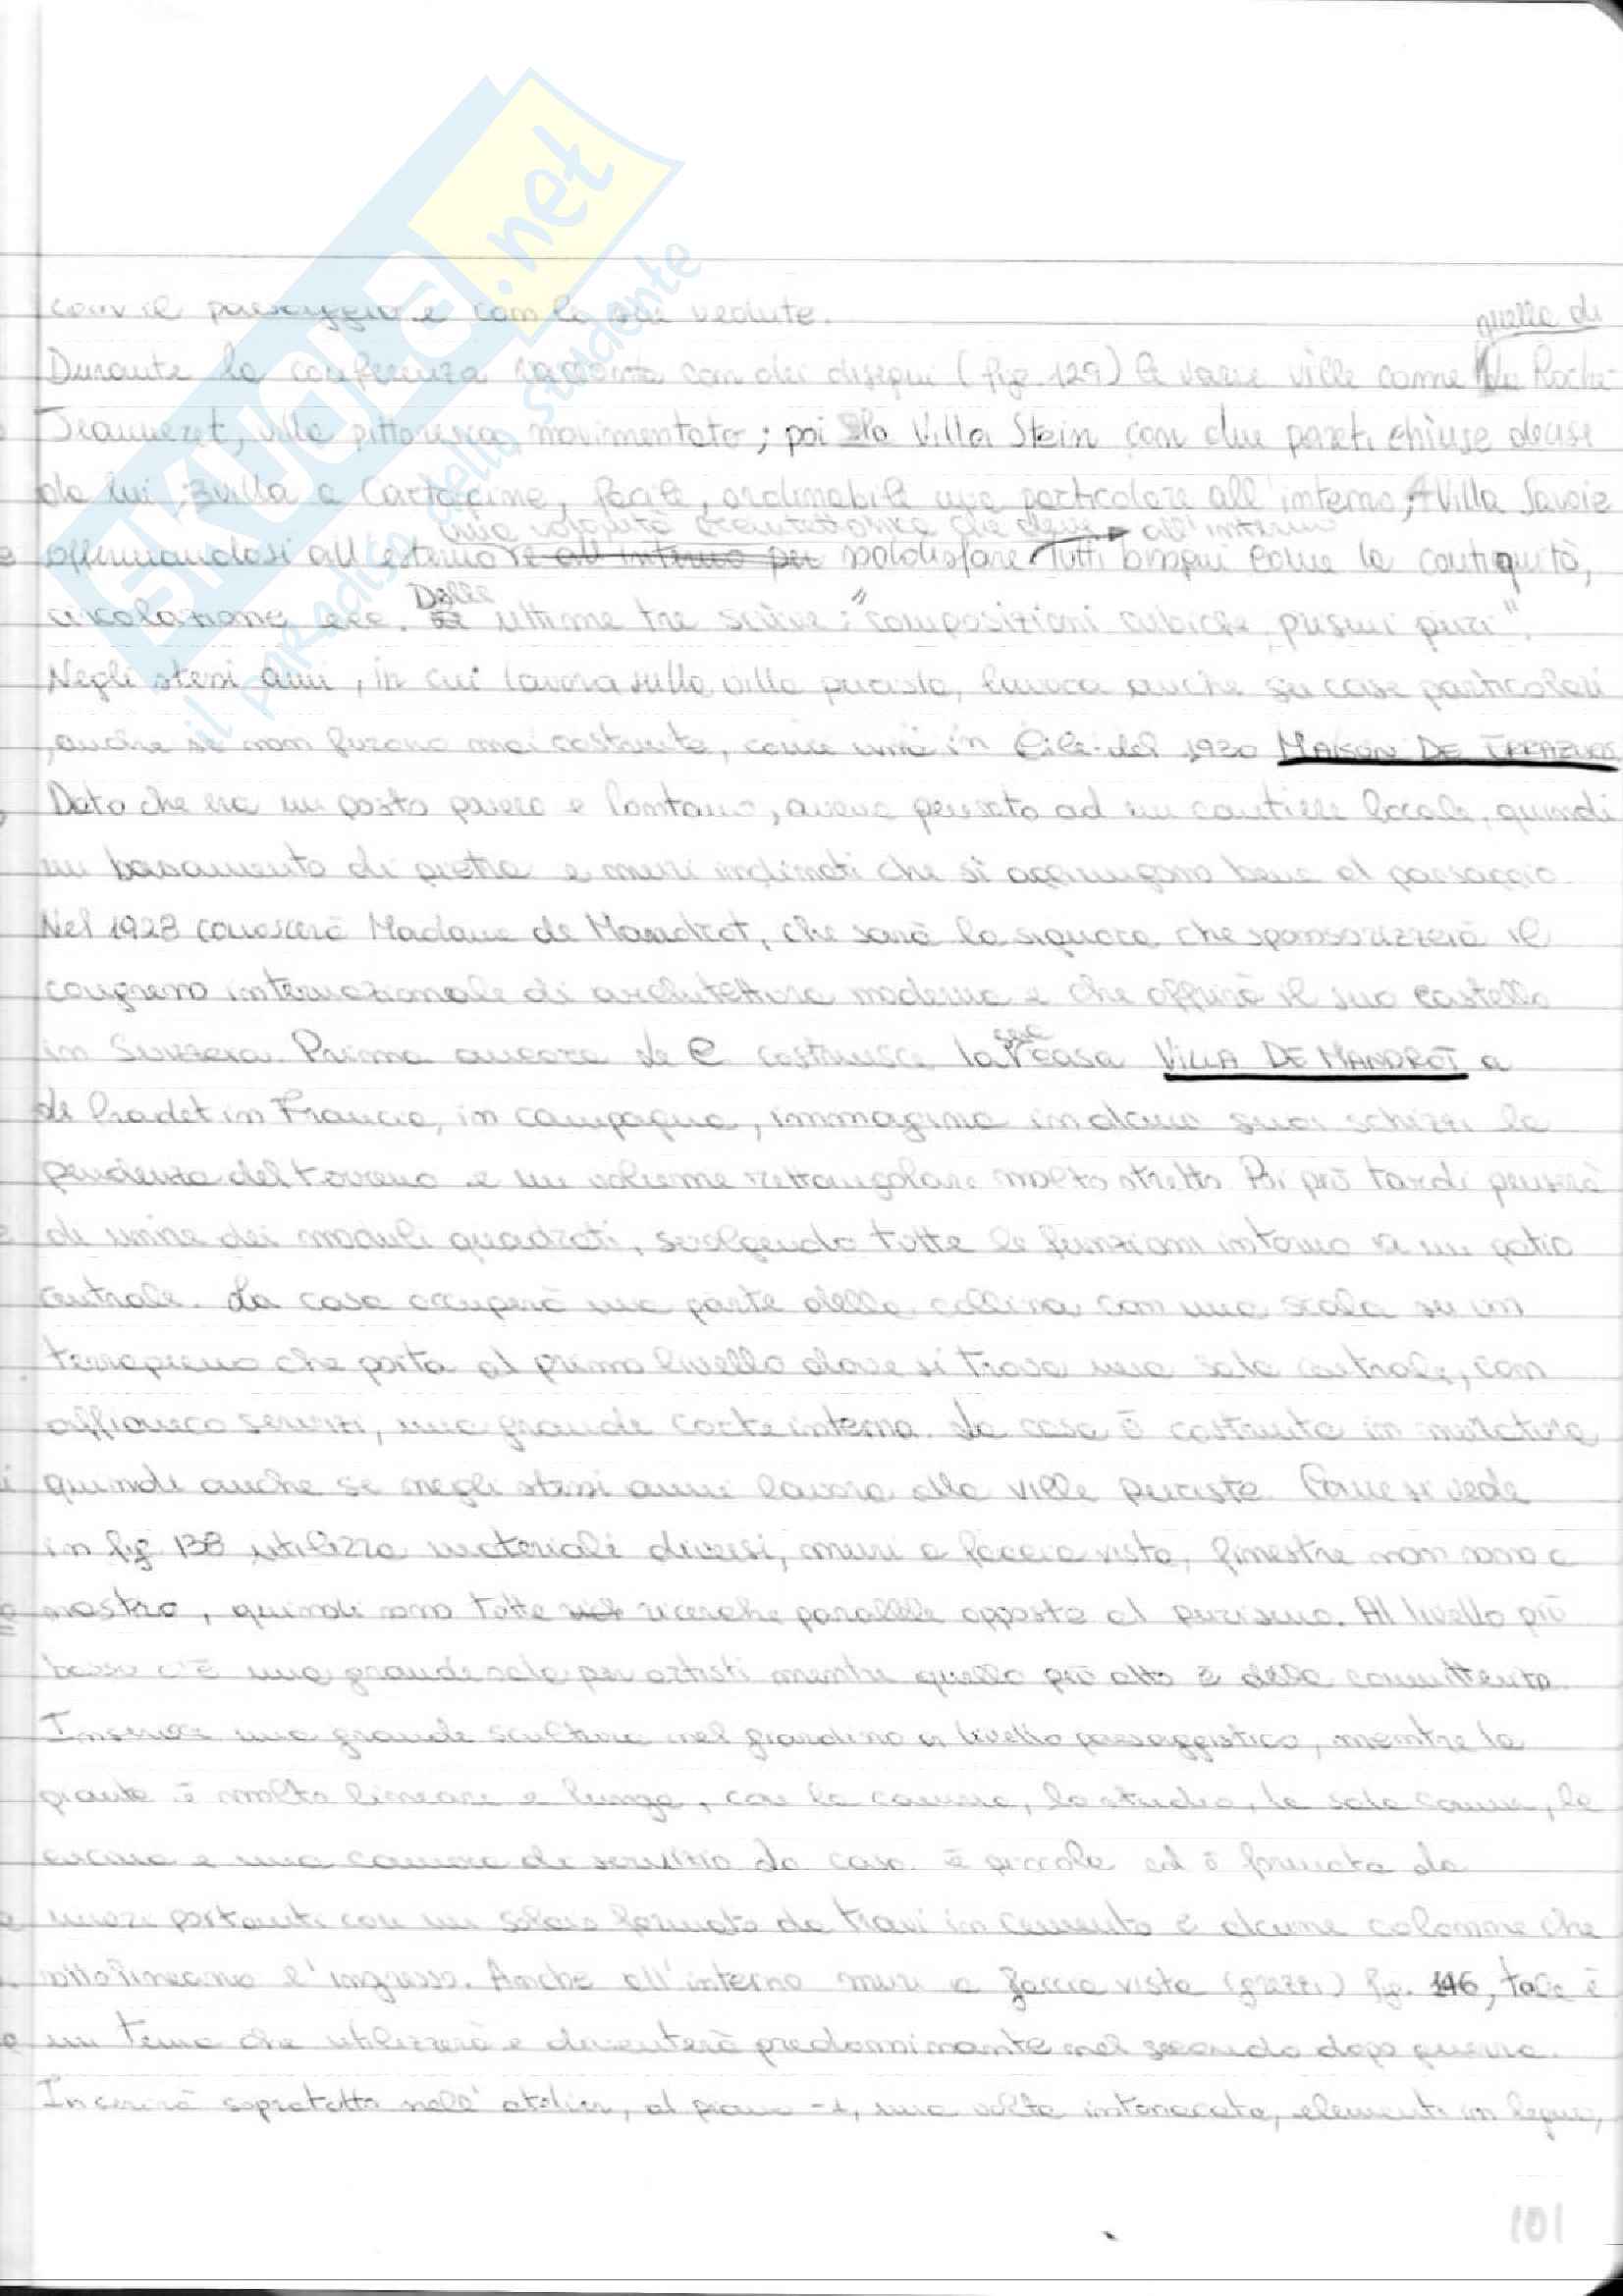 SKUOLA.net
il paradiso dello studente
con il paesaggio e con le sue vedute.
quelle di
Durante la conferenza racconta con dei disegni (fig. 129) le varie ville come La Roche-
Jeanneret, villa pittoresca movimentata; poi 2 la Villa Stein con due pareti chiuse decise
da lui; 3 villa a Cartagine, facile, ordinabile ma particolare all'interno; 4 Villa Savoie
una volontà architettonica che deve all'interno
affermandosi all'esterno re all interno per soddisfare tutti bisogni come la contiguità,
circolazione ecc. Delle ultime tre scrive: "composizioni cubiche, prismi puri".
Negli stessi anni, in cui lavora sulla villa purista, lavora anche su case particolari
, anche se non furono mai costruite, come una in Cile del 1930 MAISON DE ERRAZURIS
Dato che era un posto povero e lontano, aveva pensato ad un cantiere locale, quindi
un basamento di pietra e muri inclinati che si aggiungono bene al paesaggio.
Nel 1928 conoscerà Madame de Mandrot, che sarà la signora che sponsorizzerà il
congresso internazionale di architettura moderna e che offrirà il suo castello
in Svizzera. Prima ancora Le C costruisce la sua casa VILLA DE MANDROT a
Le Pradet in Francia, in campagna, immagina in alcuni suoi schizzi la
pendenza del terreno e un volume rettangolare molto stretto. Poi più tardi penserà
di unire dei moduli quadrati, svolgendo tutte le funzioni intorno a un patio
centrale. La casa occuperà una parte della collina con una scala su un
terrapieno che porta al primo livello dove si trova una sala centrale, con
affianco servizi, una grande corte interna. La casa è costruita in muratura
quindi anche se negli stessi anni lavora alla ville puriste. Come si vede
in fig 138 utilizza materiali diversi, muri a faccia vista, finestre non sono a
nastro, quindi sono tutte ricerche parallele opposte al purismo. Al livello più
basso c'è una grande sala per artisti mentre quello più alto è della committente.
Inserisce una grande scultura nel giardino a livello paesaggistico, mentre la
pianta è molto lineare e lunga, con la camera, lo studio, la sala comune, la
cucina e una camera di servizio. La casa è piccola ed è formata da
muri portanti con un solaio formato da travi in cemento e alcune colonne che
sottolineano l'ingresso. Anche all'interno muri a faccia vista (grezzi) fig. 146, tale è
un tema che utilizzerà e diventerà predominante nel secondo dopo guerra.
Inserirà sopratutto nell'atelier, al piano -1, una volta intonacata, elementi in legno,
101